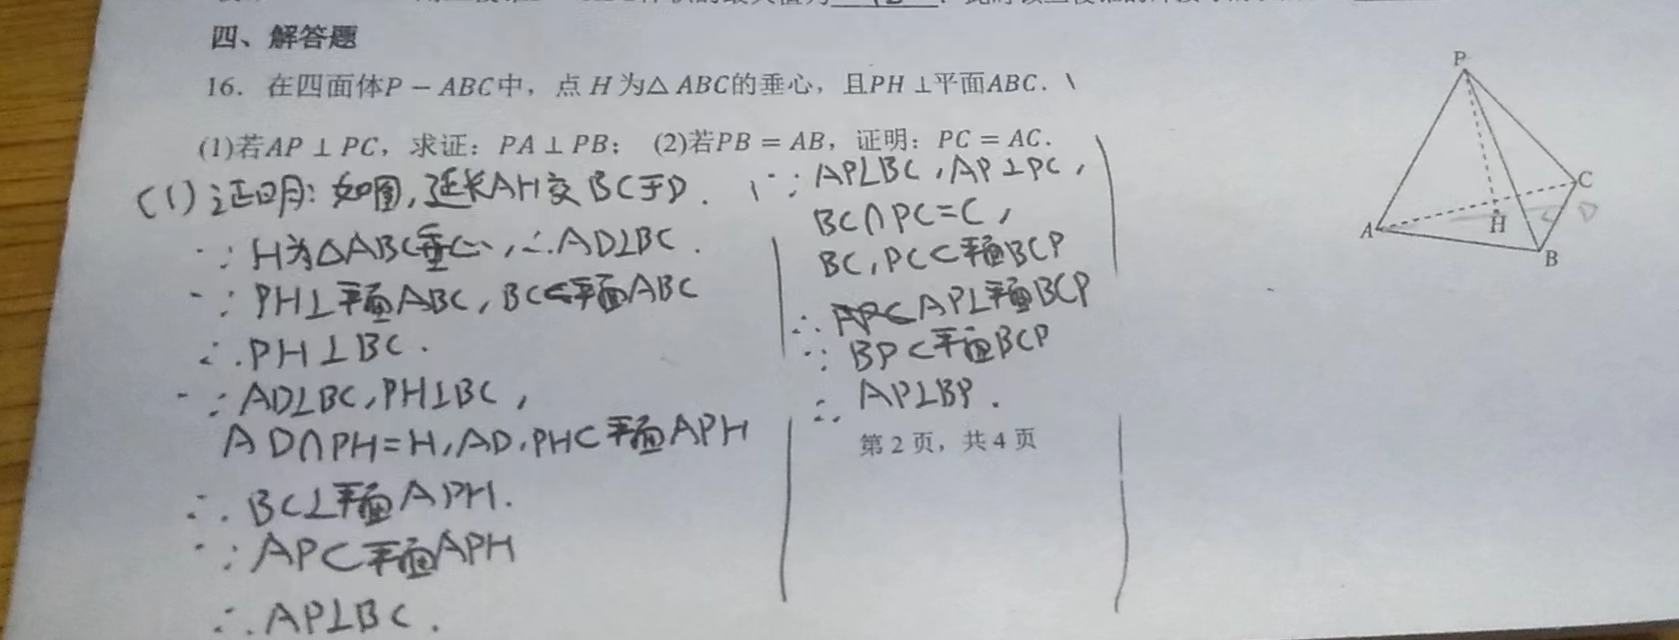 四、解答题
16. 在四面体P − ABC中，点 H 为△ ABC的垂心，且PH ⊥平面ABC.
(1)若AP ⊥ PC，求证：PA ⊥ PB； (2)若PB = AB，证明：PC = AC.
(1)证明：如图，延长AH交BC于D.
∵H为△ABC垂心，∴AD⊥BC.
∵PH⊥平面ABC，BC⊂平面ABC
∴PH⊥BC.
∵AD⊥BC，PH⊥BC，
AD∩PH=H，AD，PH⊂平面APH
∴BC⊥平面APH.
∵AP⊂平面APH
∴AP⊥BC.
∵AP⊥BC，AP⊥PC，
BC∩PC=C，
BC，PC⊂平面BCP
∴AP⊥平面BCP
∵BP⊂平面BCP
∴AP⊥BP.
第 2 页，共 4 页
P
C
D
A
H
B